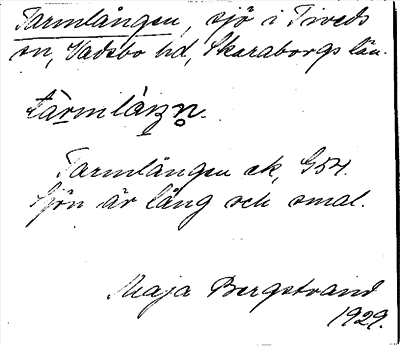 Tarmlången, sjö i Tiveds
sn, Vadsbo hd, Skaraborgs län.
Tarmlången ek, G 54.
Sjön är lång och smal.
Maja Bergstrand
1929.